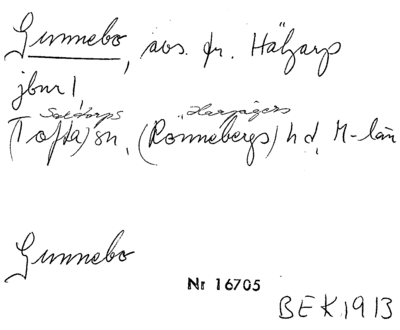 Gunnebo, avs. fr. Häljarp
jbnr 1,
Saxtorps Harjagers
(Tofta) sn, (Rönnebergs) hd, M-län
Gunnebo
Nr 16705
BEK 1913